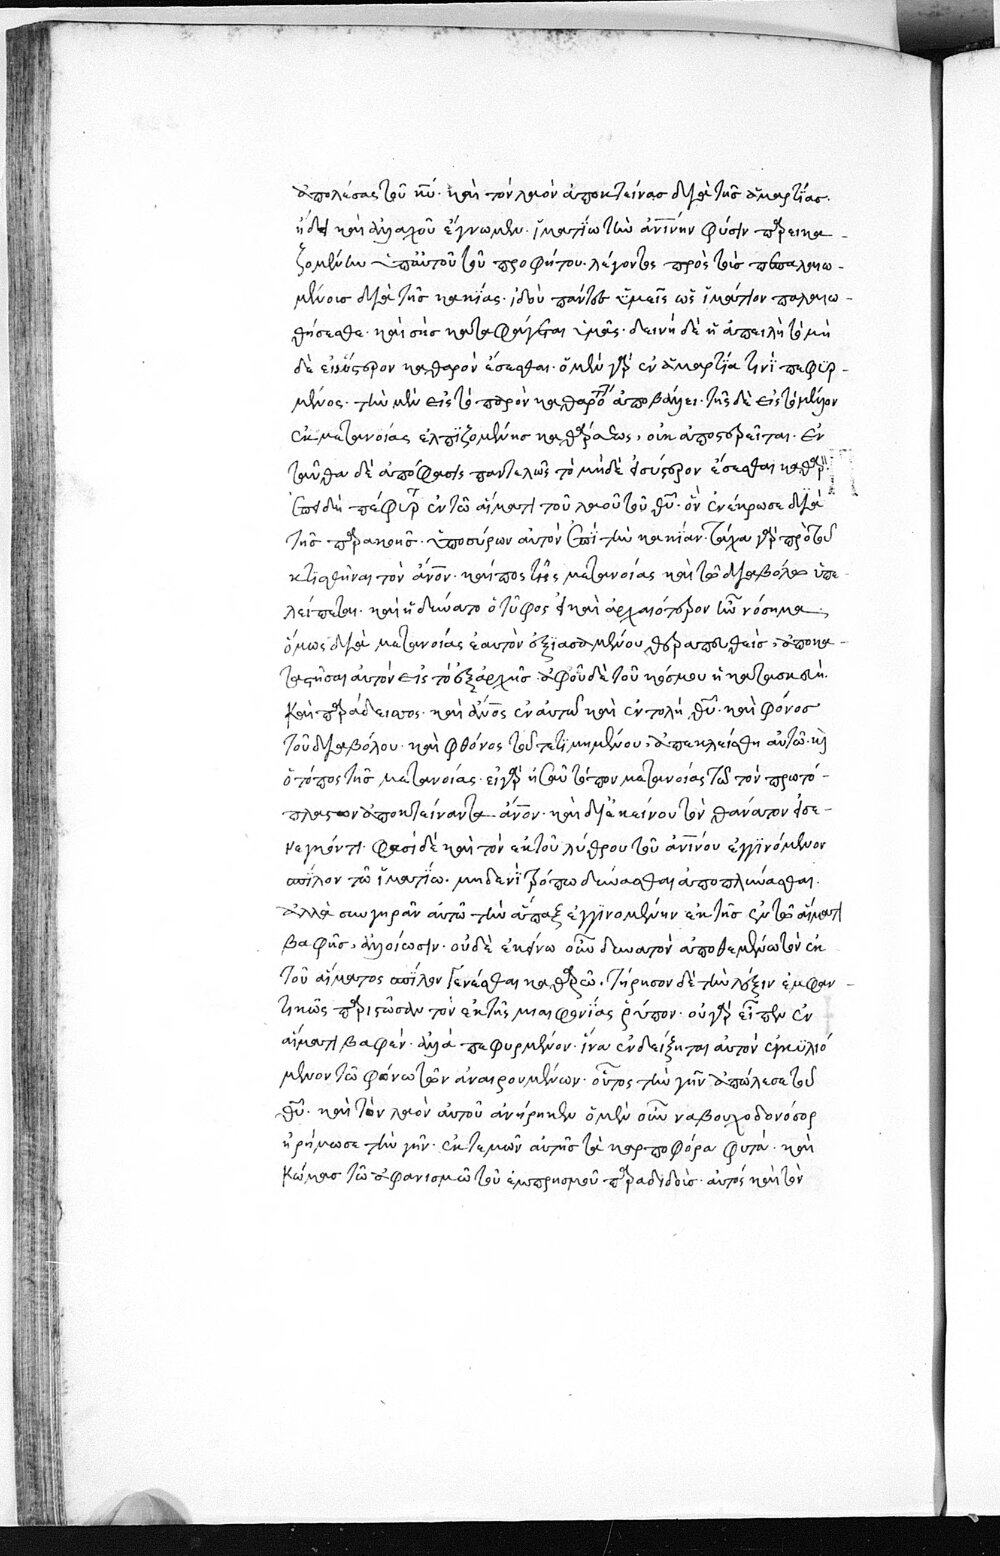 ἀπολέσας τοῦ κυ̅· καὶ τὸν λαὸν ἀποκτείνας διὰ τῆς ἁμαρτίας·
ἤδη καὶ ἀλλαχοῦ ἔγνωμεν· ἱματίω τὴν ἀνι̅νην φύσιν παρεικα-
ζομένην ὑπ' αὐτοῦ τοῦ προφήτου· λέγοντος πρὸς τοὺς πεπαλαιω-
μένοις διὰ τῆς κακίας· ἰδοὺ πάντες ὑμεῖς ὡς ἱμάτιον παλαιω-
θήσεσθε· καὶ σὴς καταφάγεται ὑμᾶς· δεινὴ δὲ ἡ ἀπειλὴ τὸ μὴ
δὲ εἰσύστερον καθαρὸν ἔσεσθαι· ὁ μὲν γὰρ ἐν ἁμαρτία τινὶ πεφυρ-
μένος· τὴν μὲν εἰς τὸ παρὸν καθαρότητα ἀποβάλλει· τῆς δὲ εἰς τὸ μέλλον
ἐκ μετανοίας ἐλπιζομένης καθάρσεως, οὐκ ἀποστερεῖται· ἐν
ταῦθα δὲ ἀπόφασις παντελῶς τὸ μηδὲ ἐσύστερον ἔσεσθαι καθαρ
ἐπειδὴ πέφυρται ἐν τῶ αἵματι τοῦ λαοῦ τοῦ θυ̅· ὃν ἐνέκρωσε διὰ
τῆς παρακοῆς· ὑποσύρων αὐτὸν ἐπὶ τὴν κακίαν· τάχα γὰρ πρὸ τοῦ
κτισθῆναι τὸν ἄνον̅· καί πος τόπος μετανοίας καὶ τῶ διαβόλω ὑπε-
λείπετο· καὶ ἠδύνατο ὁ τῦφος εἰ καὶ ἀρχαιότερον ἦν νόσημα,
ὅμως διὰ μετανοίας ἑαυτὸν ἐξιασαμένου, θεραπευθεὶς, ἀποκα-
ταστῆσαι αὐτὸν εἰς τὸ ἐξαρχῆς· ἀφ' οὗ δὲ τοῦ κόσμου ἡ κατασκευή.
καὶ παράδεισος· καὶ ἄνος̅ ἐν αὐτῶ καὶ ἐντολὴ θυ̅· καὶ φόνος
τοῦ διαβόλου· καὶ φθόνος τοῦ τετιμημένου, ἀπεκλείσθη αὐτῶ· κὶ
ὁ τόπος τῆς μετανοίας· εἰ γὰρ ἡσαῦ τόπον μετανοίας τῶ τὸν πρωτό-
πλαστον ἀποκτείναντα ἄνον̅· καὶ δι' ἐκείνου τὸν θάνατον εἰσε-
νεγκόντι· φασὶ δὲ καὶ τὸν ἐκ τοῦ λύθρου τοῦ ἀνι̅νου ἐγγινόμενον
σπίλον τῶ ἱματίω· μηδενὶ τρόπω δύνασθαι ἀποπλύνασθαι·
ἀλλὰ συγγηρᾶν αὐτῶ τὴν ἅπαξ ἐγγινομένην ἐκ τῆς ἐν τῶ αἵματι
βαφῆς, ἀλλοίωσιν· οὐδὲ ἐκείνω οὖν δυνατὸν ἀποθεμένω τὸν ἐκ
τοῦ αἵματος σπίλον γενέσθαι καθαρῶ· τήρησον δὲ τὴν λέξιν ἐμφαν-
τικῶς παριστῶσαν τὸν ἐκ τῆς μιαιφονίας ῥύπον· οὐ γὰρ εἶπεν ἐν
αἵματι βαφὲν· ἀλλὰ πεφυρμένον· ἵνα ἐνδείξηται αὐτὸν ἐγκυλιό
μενον τῶ φόνω τῶν ἀναιρουμένων· οὗτος τὴν γῆν ἀπώλεσε τοῦ
θυ̅· καὶ τὸν λαὸν αὐτοῦ ἀνήρηκεν ὁ μὲν οὖν ναβουχοδονόσορ
ἠρήμωσε τὴν γῆν· ἐκτεμὼν αὐτῆς τὰ καρποφόρα φυτὰ· καὶ
κώμας τῶ ἀφανισμῶ τοῦ ἐμπρησμοῦ παραδιδοὺς· αὐτός καὶ τὸν